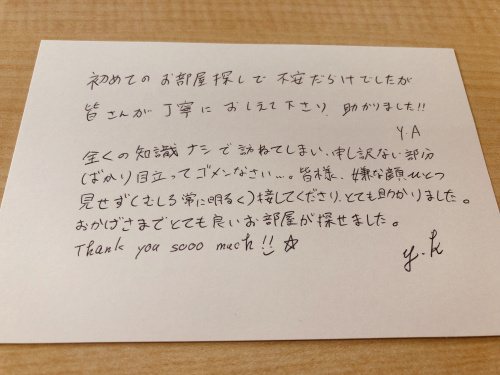 初めてのお部屋探しで不安だらけでしたが
皆さんが丁寧におしえて下さり、助かりました!!
Y.A
全くの知識ナシで訪ねてしまい、申し訳ない部分
ばかり目立ってゴメンなさい…。皆様、嫌な顔ひとつ
見せず(むしろ常に明るく)接してくださり、とても助かりました。
おかげさまでとても良いお部屋が探せました。
Thank you sooo much!! ☆
y.k